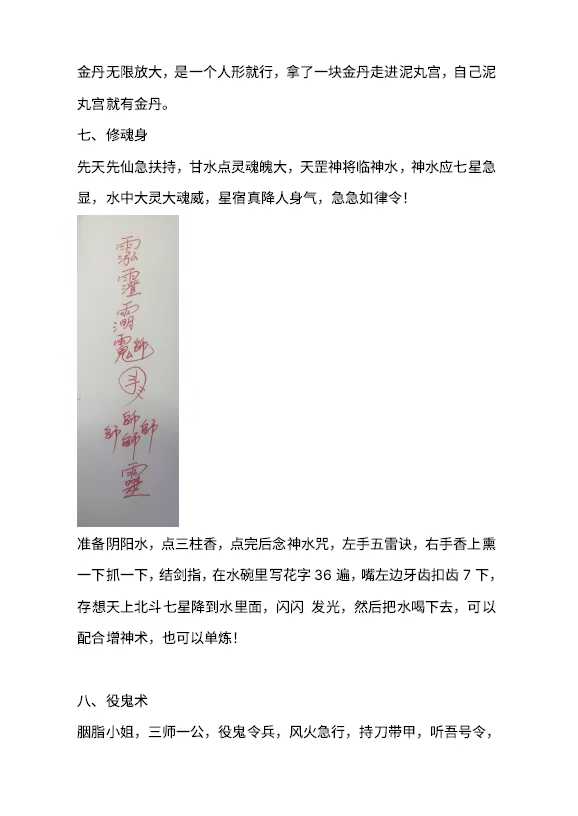 金丹无限放大，是一个人形就行，拿了一块金丹走进泥丸宫，自己泥
丸宫就有金丹。
七、修魂身
先天先仙急扶持，甘水点灵魂魄大，天罡神将临神水，神水应七星急
显，水中大灵大魂威，星宿真降人身气，急急如律令！
師
師
師 師 師
準备阴阳水，点三柱香，点完后念神水咒，左手五雷诀，右手香上熏
一下抓一下，结剑指，在水碗里写花字 36 遍，嘴左边牙齿扣齿 7 下，
存想天上北斗七星降到水里面，闪闪 发光，然后把水喝下去，可以
配合增神术，也可以单炼！
八、役鬼术
胭脂小姐，三师一公，役鬼令兵，风火急行，持刀带甲，听吾号令，